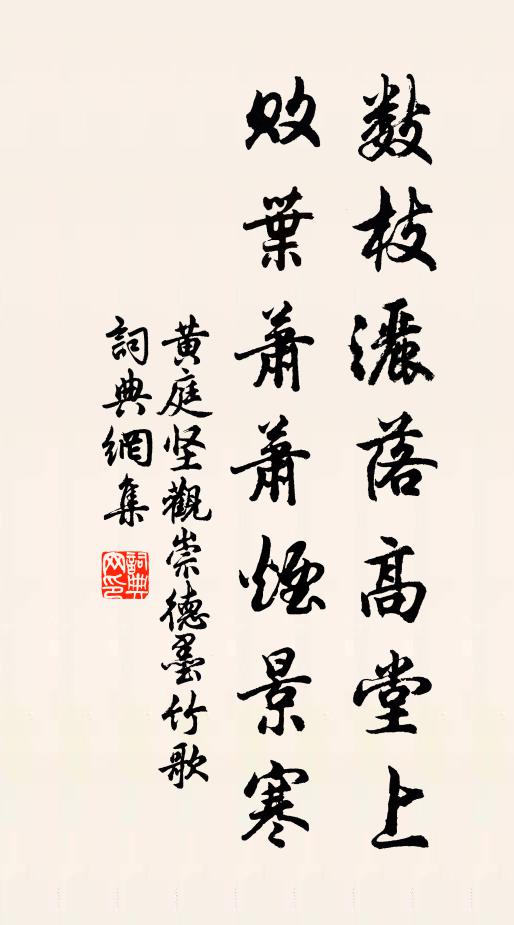 數枝灑落高堂上
敗葉蕭蕭煙景寒
黃庭坚觀崇德墨竹歌
詞典網集
詞典网印